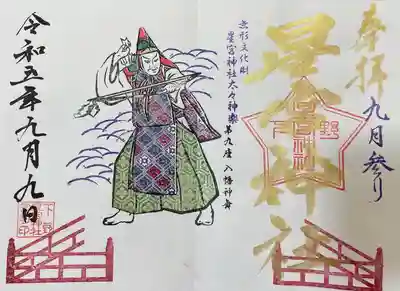 奉拝
九月参り
星宮神社
下野
無形文化財
星宮神社太々神楽
第九座 八幡神舞
令和五年九月九日